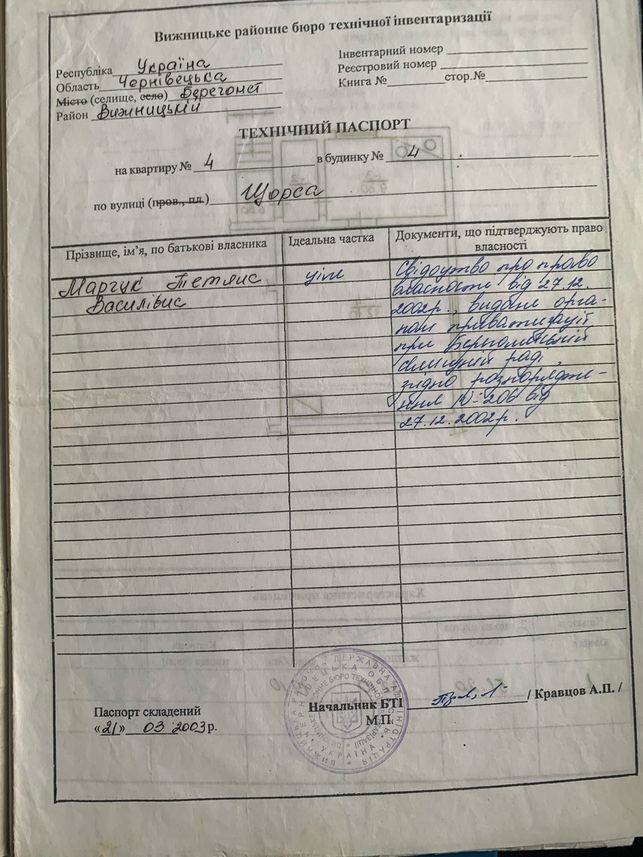 Вижницьке районне бюро технічної інвентаризації
Республіка Україна
Область Чернівецька
Місто (селище, село) Берегомет
Район Вижницький
Інвентарний номер
Реєстровий номер
Книга № стор.№
ТЕХНІЧНИЙ ПАСПОРТ
на квартиру № 4 в будинку № 4
по вулиці (пров., пл.) Щорса
Прізвище, ім’я, по батькові власника
Ідеальна частка
Документи, що підтверджують право власності
Марчук Тетяна
Василівна
ціле
Свідоцтво про право
власности від 27.12.
2002р., видане орга-
ном приватизації
при Берегометській
селищній раді,
згідно розпорядже-
ння №206 від
27.12.2002р.
Паспорт складений
«21» 03 2003 р.
Начальник БТІ / Кравцов А.П. /
М.П.